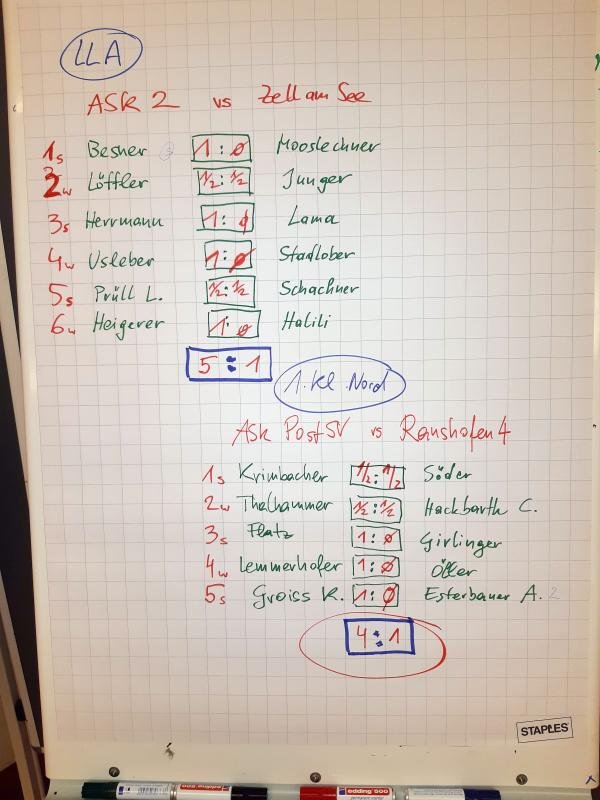 LLA
ASK 2 vs Zell am See
1s Besner 1 : 0 Mooslechner
2w Löffler 1/2 : 1/2 Junger
3s Herrmann 1 : 0 Lama
4w Usleber 1 : 0 Stadlober
5s Prüll L. 1/2 : 1/2 Schachner
6w Heigerer 1 : 0 Halili
5 : 1
1. Kl. Nord
ASK Post SV vs Ranshofen 4
1s Krimbacher 1/2 : 1/2 Söder
2w Thalhammer 1/2 : 1/2 Hackbarth C.
3s Flatz 1 : 0 Girlinger
4w Lemmerhofer 1 : 0
5s Groiss K. 1 : 0 Esterbauer A.
4 : 1
STAPLES
edding 500
edding 500